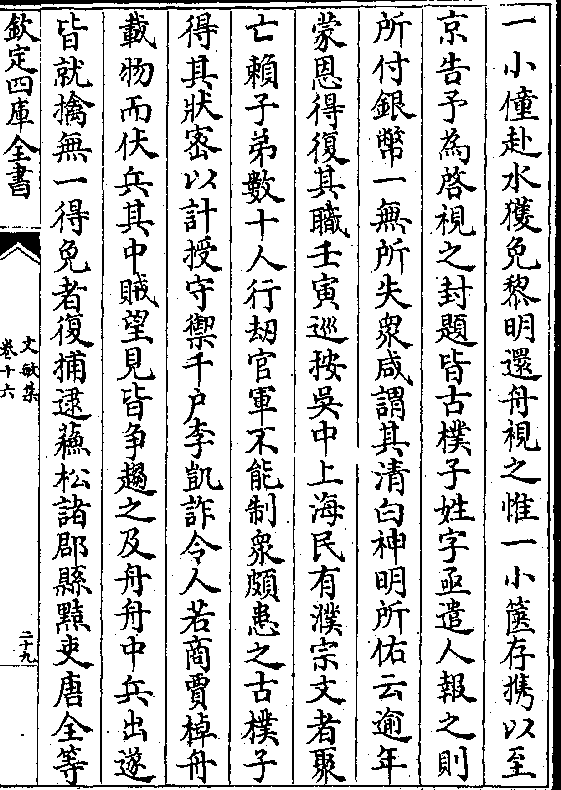 一小僮赴水獲免黎明還舟視之惟一小篋存携以至
京告予為啓視之封題皆古樸子姓字亟遣人報之則
所付銀幣一無所失衆咸謂其清白神明所佑云逾年
蒙恩得復其職壬寅巡按吳中上海民有濮宗文者聚
亡賴子弟數十人行刼官軍不能制衆頗患之古樸子
得其狀密以計授守禦千户李凱詐令人若商賈棹舟
載物而伏兵其中賊望見皆争趨之及舟舟中兵出遂
皆就擒無一得免者復捕逮蘓松諸郡縣黠吏唐全等
欽定四庫全書
文敏集
卷十六
二十九